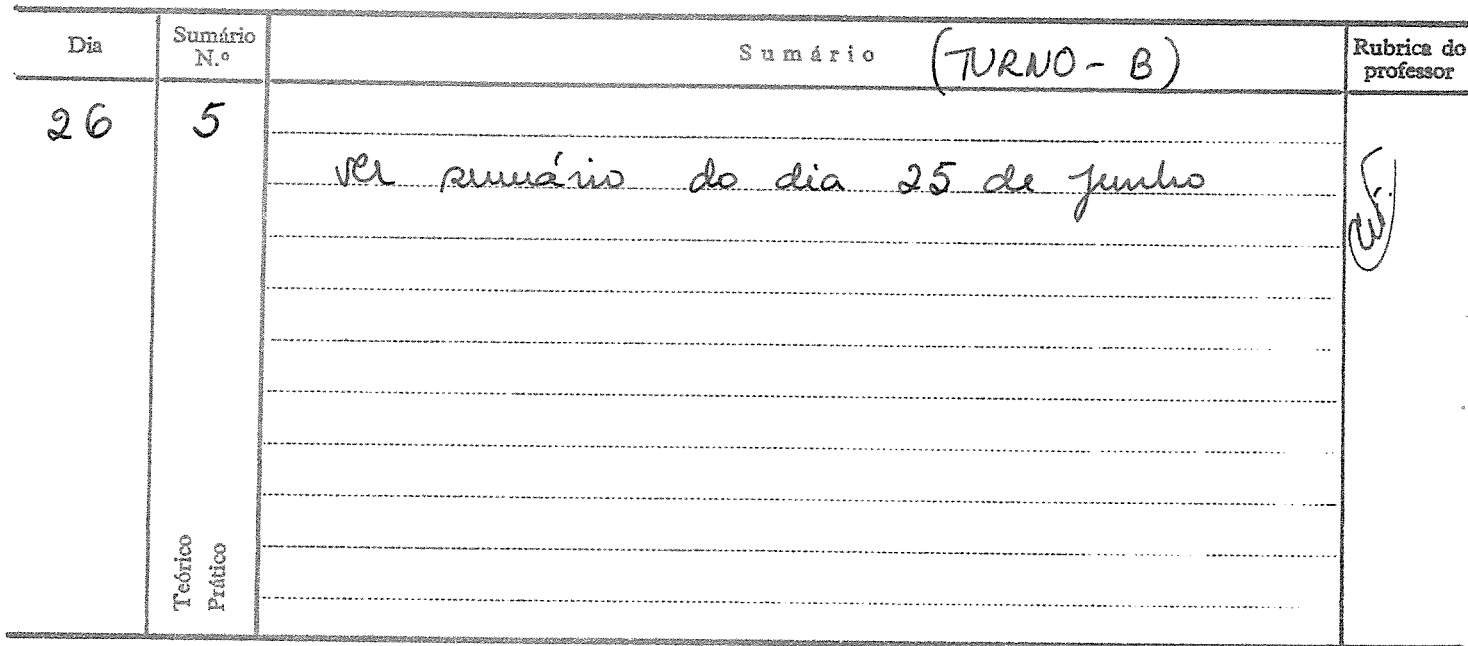 Dia
Sumário N.º
Sumário (TURNO - B)
Rubrica do professor
26
5
ver sumário do dia 25 de junho
Teórico
Prático